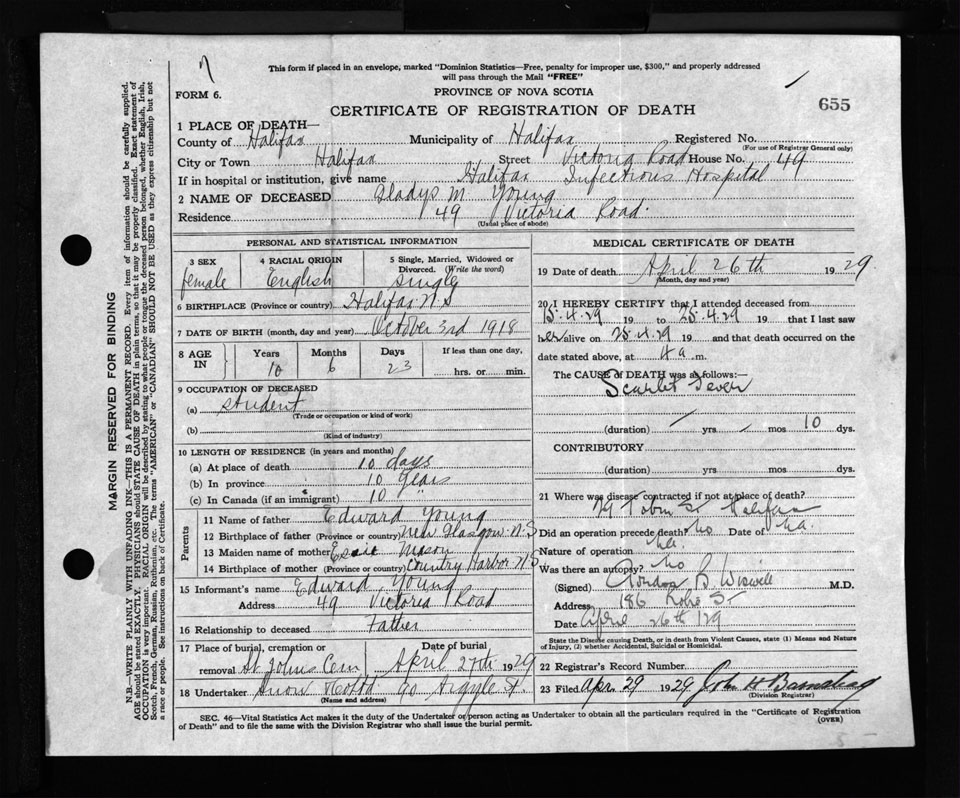 This form if placed in an envelope, marked "Dominion Statistics—Free, penalty for improper use, $300," and properly addressed
will pass through the Mail "FREE"
FORM 6.
PROVINCE OF NOVA SCOTIA
655
CERTIFICATE OF REGISTRATION OF DEATH
1 PLACE OF DEATH—
County of Halifax Municipality of Halifax Registered No.
(For use of Registrar General only)
City or Town Halifax Street Victoria Road House No. 49
If in hospital or institution, give name Halifax Infectious Hospital
2 NAME OF DECEASED Gladys M Young
Residence 49 Victoria Road.
(Usual place of abode)
PERSONAL AND STATISTICAL INFORMATION
3 SEX 4 RACIAL ORIGIN 5 Single, Married, Widowed or
Divorced. (Write the word)
female English Single
6 BIRTHPLACE (Province or country) Halifax N.S
7 DATE OF BIRTH (month, day and year) October 3rd 1918
8 AGE IN Years Months Days If less than one day,
10 6 23 hrs. or min.
9 OCCUPATION OF DECEASED
(a) Student
(Trade or occupation or kind of work)
(b)
(Kind of industry)
10 LENGTH OF RESIDENCE (in years and months)
(a) At place of death 10 days
(b) In province 10 years
(c) In Canada (if an immigrant) 10 "
Parents
11 Name of father Edward Young
12 Birthplace of father (Province or country) New Glasgow N.S
13 Maiden name of mother Mason
14 Birthplace of mother (Province or country) Country Harbor N.S
15 Informant's name Edward Young
Address 49 Victoria Road
16 Relationship to deceased Father
17 Place of burial, cremation or Date of burial
removal St Johns Cem April 27th 1929
18 Undertaker Snow 90 Argyle St.
(Name and address)
MEDICAL CERTIFICATE OF DEATH
19 Date of death April 26th 1929
(Month, day and year)
20 I HEREBY CERTIFY that I attended deceased from
15.4.29 19 to 25.4.29 19 that I last saw
her alive on 25.4.29 19 and that death occurred on the
date stated above, at 4 a.m.
The CAUSE OF DEATH was as follows:—
Scarlet Fever
(duration) / yrs / mos 10 dys.
CONTRIBUTORY
(duration) yrs. mos dys.
21 Where was disease contracted if not at place of death?
29 Tobin St Halifax
Did an operation precede death? No Date of Na.
Nature of operation Na.
Was there an autopsy? No
(Signed) Gordon B. Wiswell M.D.
Address 186 Robie St
Date April 26th /29
State the Disease causing Death, or in death from Violent Causes, state (1) Means and Nature
of Injury, (2) whether Accidental, Suicidal or Homicidal.
22 Registrar's Record Number
23 Filed Apr 29 1929 John H Barnstead
(Division Registrar)
SEC. 46—Vital Statistics Act makes it the duty of the Undertaker or person acting as Undertaker to obtain all the particulars required in the "Certificate of Registration
of Death" and to file the same with the Division Registrar who shall issue the burial permit.
(OVER)
MARGIN RESERVED FOR BINDING
N.B.—WRITE PLAINLY WITH UNFADING INK—THIS IS A PERMANENT RECORD. Every item of information should be carefully supplied.
AGE should be stated EXACTLY. PHYSICIANS should STATE CAUSE OF DEATH in plain terms, so that it may be properly classified. Exact statement of
OCCUPATION is very important. RACIAL ORIGIN will be described by stating to what people or tongue the deceased person belonged, whether English, Irish,
Scotch, French, German, Russian, Ruthenian, etc. The terms "AMERICAN" or "CANADIAN" SHOULD NOT BE USED as they express citizenship but not
a race or people. See instructions on back of Certificate.